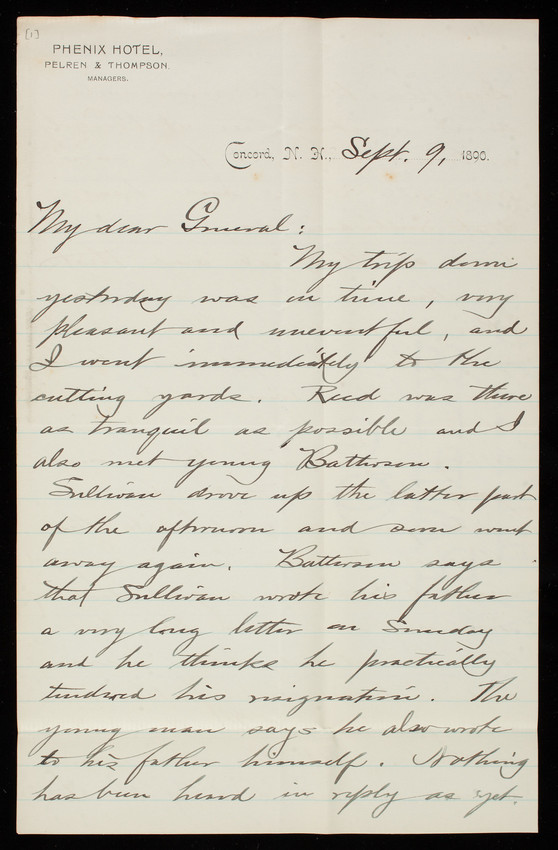 [1]
PHENIX HOTEL,
PELREN & THOMPSON.
MANAGERS.
Concord, N. H., Sept. 9, 1890.
My dear General:
My trip down
yesterday was on time, very
pleasant and uneventful, and
I went immediately to the
cutting yards. Reed was there
as tranquil as possible and I
also met young Batterson.
Sullivan drove up the latter part
of the afternoon and soon went
away again. Batterson says
that Sullivan wrote his father
a very long letter on Sunday
and he thinks he practically
tendered his resignation. The
young man says he also wrote
to his father himself. Nothing
has been heard in reply as yet.